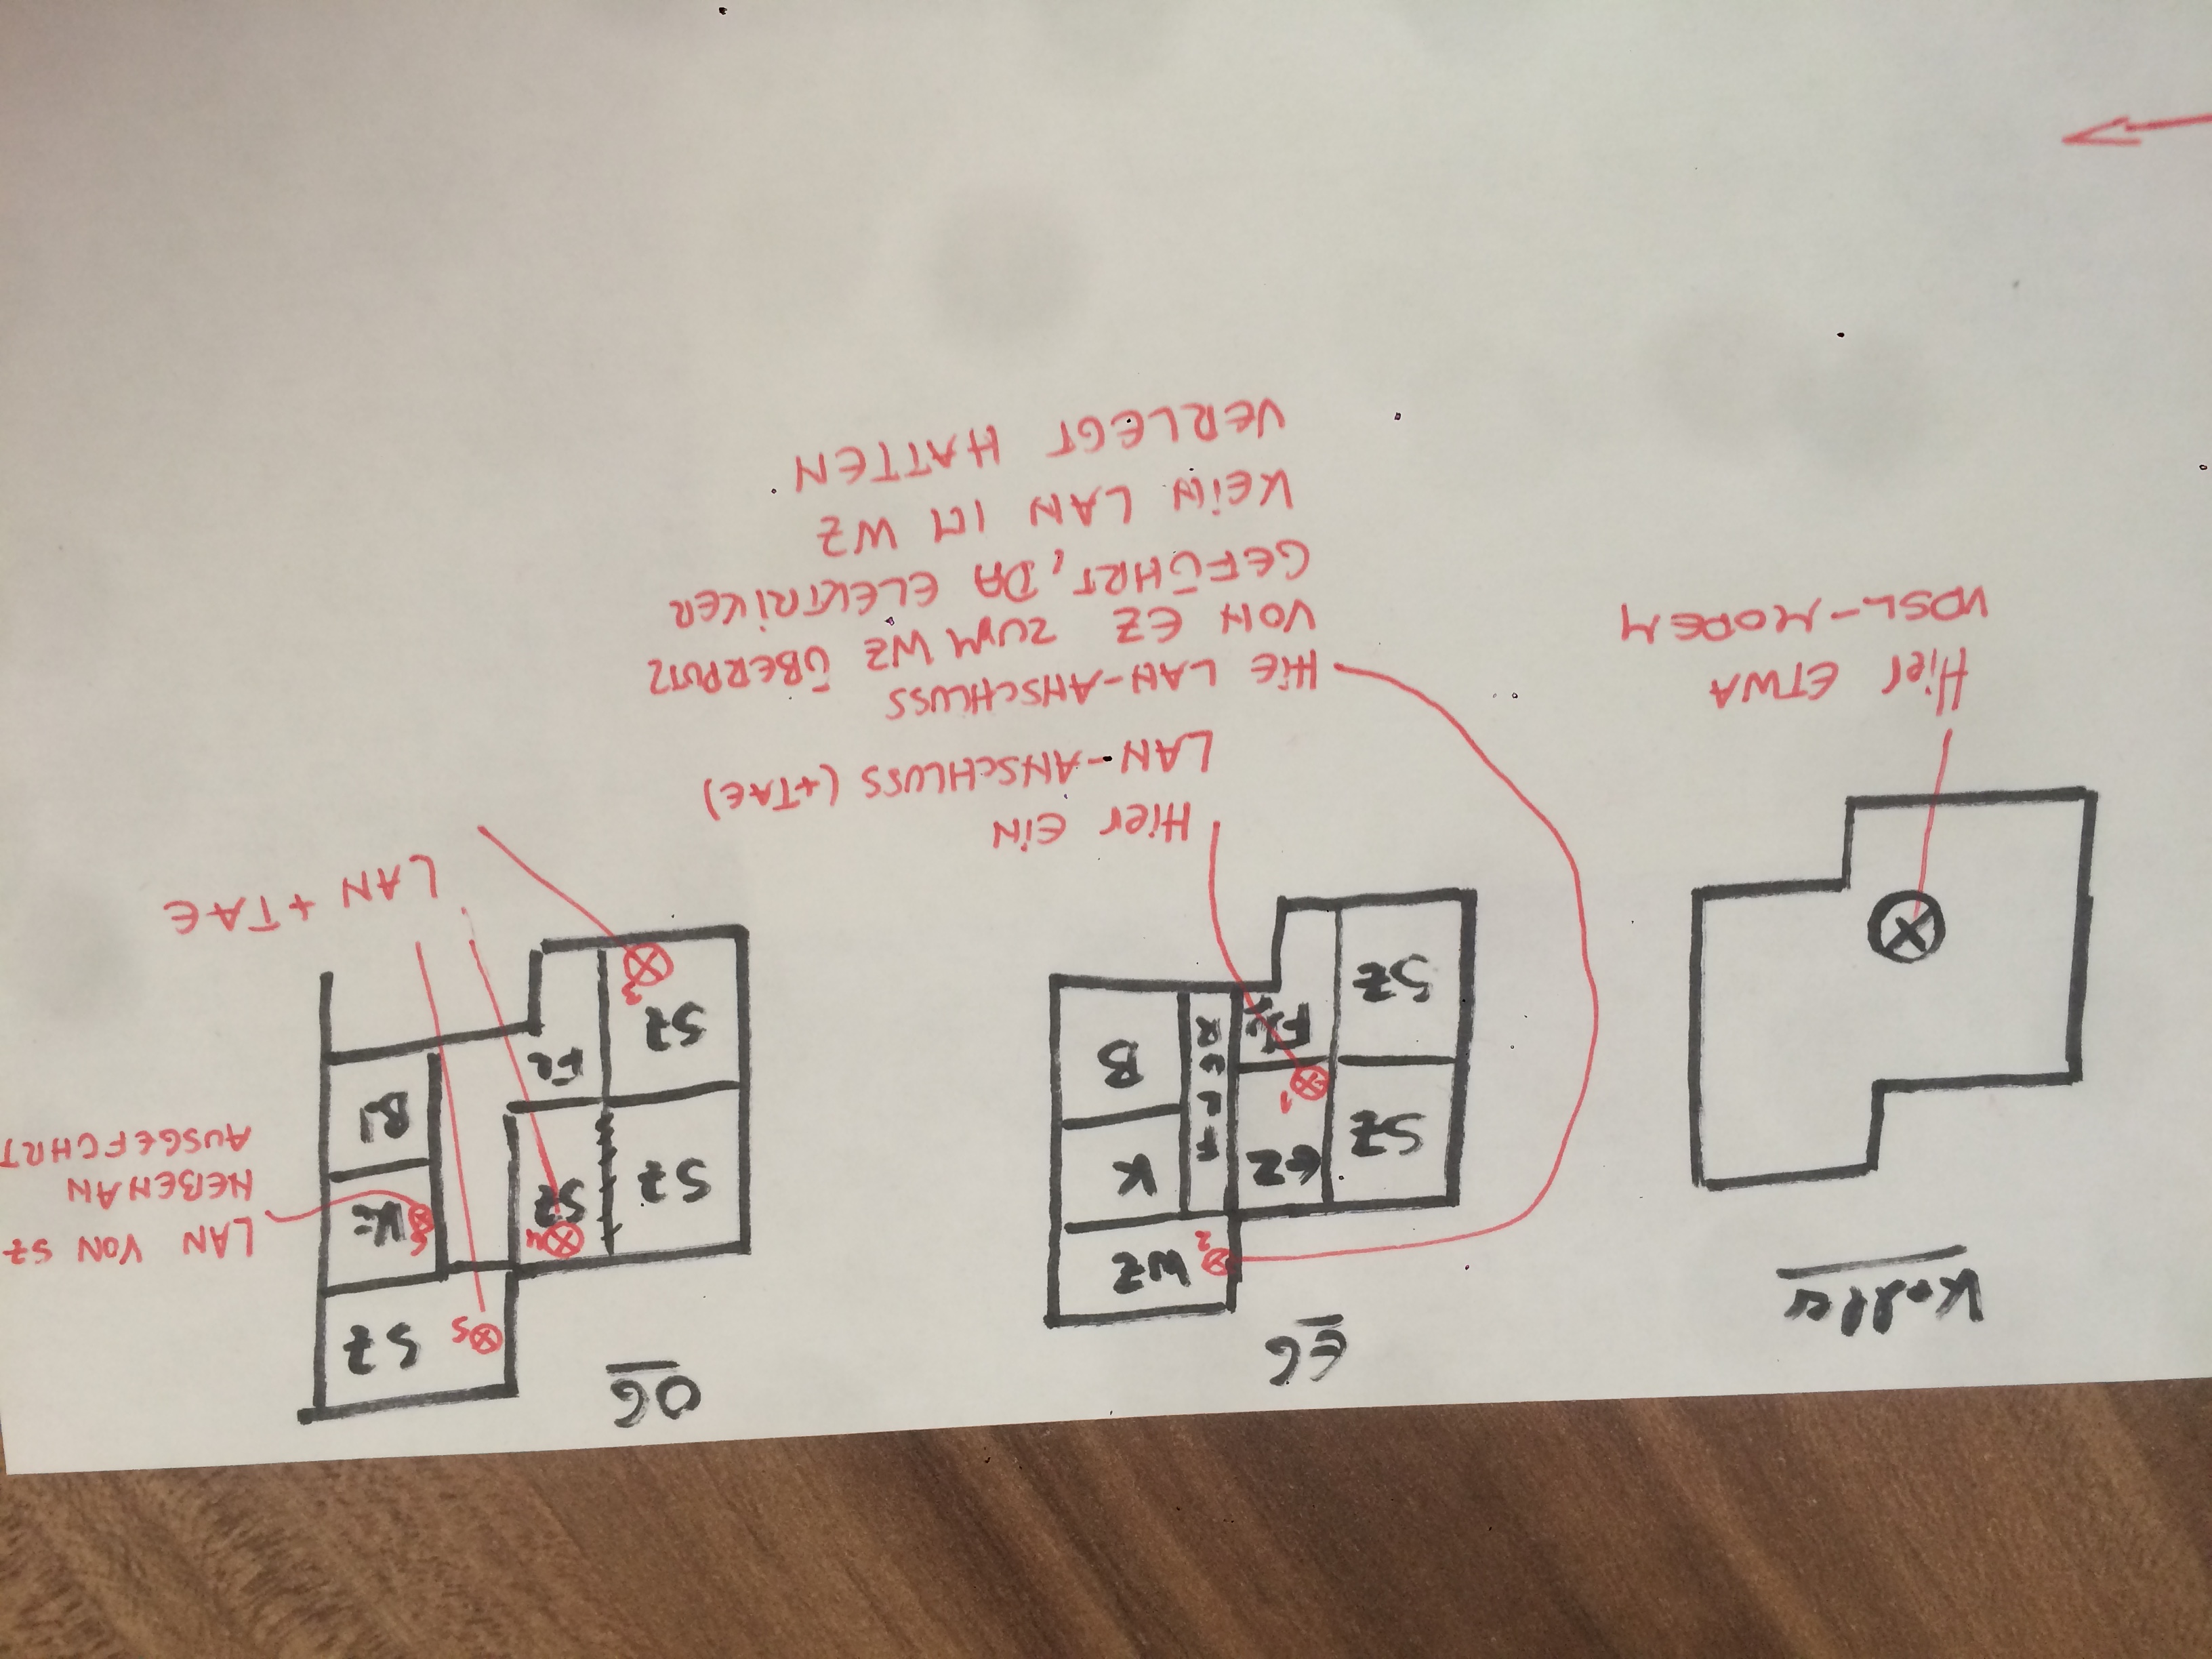 Keller
Hier ETWA
VDSL-MODEM
EG
WZ
2
K
B
EZ
SZ
1
SZ
Hier EIN
LAN-ANSCHLUSS (+TAE)
HIE LAN-ANSCHLUSS
VON EZ ZUM WZ ÜBERPUTZ
GEFÜHRT, DA ELEKTRIKER
KEIN LAN IM WZ
VERLEGT HATTEN
OG
SZ
5
SZ
4
SZ
FL
SZ
3
LAN VON SZ
NEBENAN
AUSGEFÜHRT
LAN + TAE